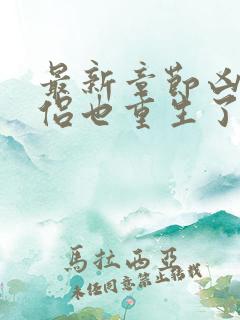 最新章节凶
侣也重生了
馬拉西亞
未经同意禁止转载